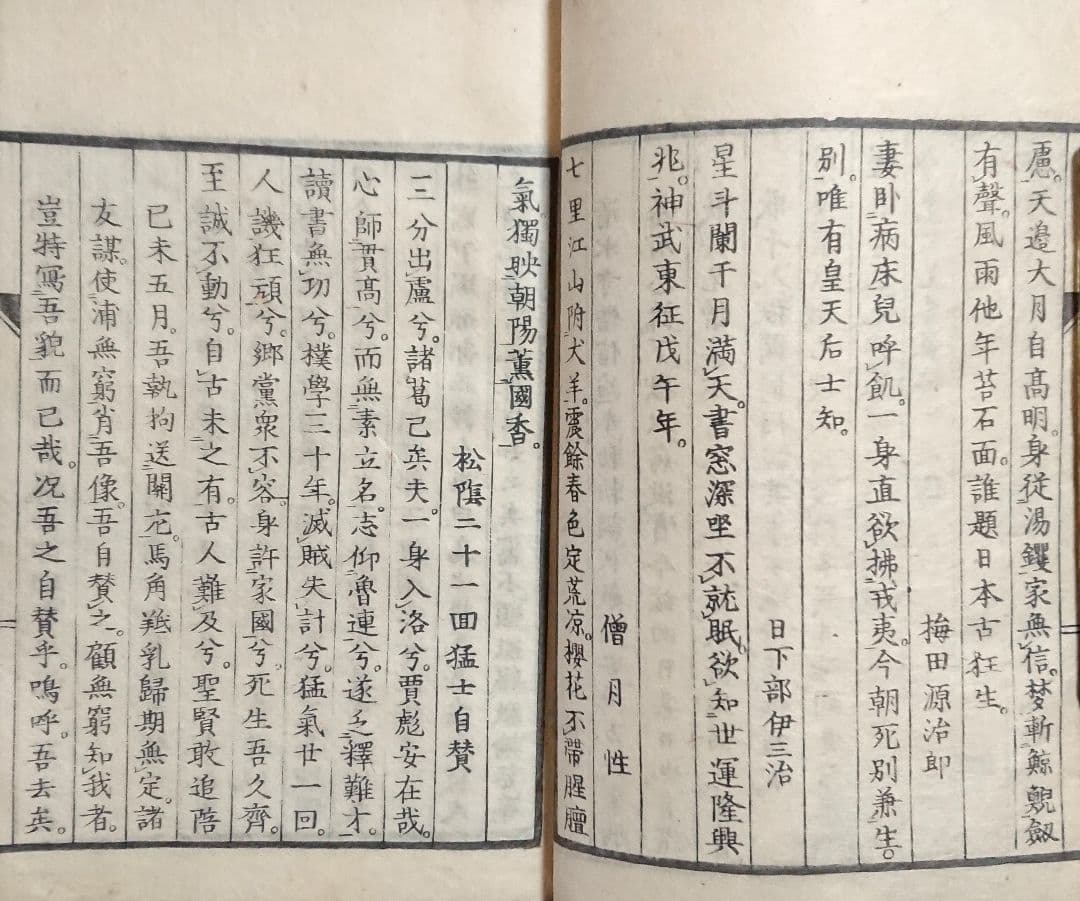 慮。天邉大月自髙明。身從湯鑊家無信。梦斬鯨鯢劔
有聲。風雨他年苔石面。誰題日本古狂生。
梅田源治郎
妻卧病床兒呌飢。一身直欲拂戎夷。今朝死別兼生
別。唯有皇天后士知。
日下部伊三治
星斗闌干月滿天。書窓深坐不就眠。欲知世運隆興
兆。神武東征戊午年。
僧月性
七里江山附犬羊。震餘春色定荒凉。櫻花不帶腥膻
氣。獨映朝陽薰國香。
松陰二十一回猛士自賛
三分出盧兮。諸葛已矣夫。一身入洛兮。賈彪安在哉。
心師貫髙兮。而無素立名。志仰魯連兮。遂乏釋難才。
讀書無功兮。樸學三十年。滅賊失計兮。猛氣廿一回。
人譏狂頑兮。鄉黨衆不容。身許家國兮。死生吾久齊。
至誠不動兮。自古未之有。古人難及兮。聖賢敢追陪
己未五月。吾執拘送關左。馬角羝乳歸期無定。諸
友謀。使浦無窮肖吾像。吾自賛之。顧無窮知我者。
豈特寫吾貌而已哉。况吾之自賛乎。嗚呼。吾去矣。